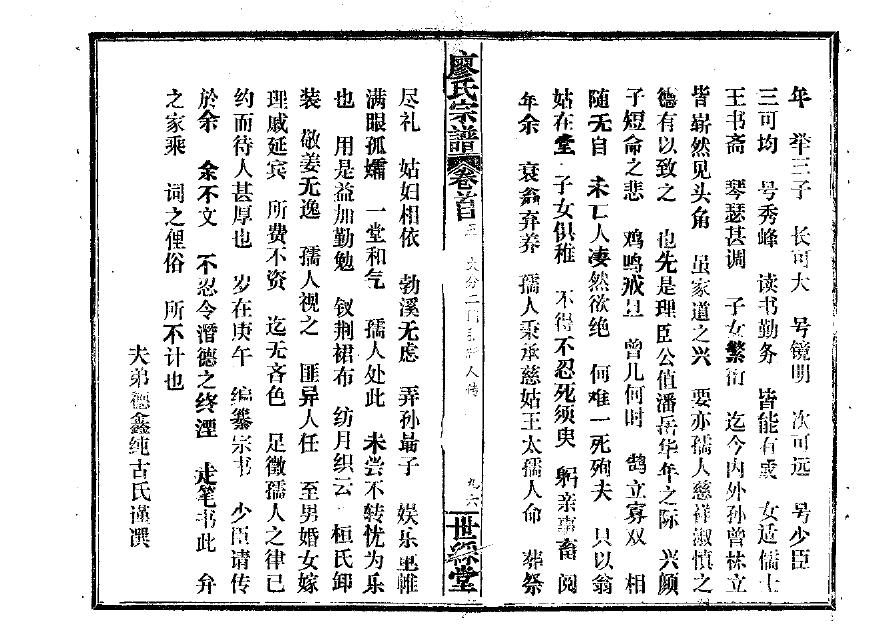 年 举三子 长可大 号镜明 次可远 号少臣
三可均 号秀峰 读书勤务 皆能有成 女适儒士
王书斋 琴瑟甚调 子女繁衍 迄今内外孙曾林立
皆崭然见头角 虽家道之兴 要亦孺人慈祥淑慎之
德有以致之 也先是理臣公值潘岳华年之际 兴颜
子短命之悲 鸡鸣戒旦 曾几何时 鹄立寡双 相
随无自 未亡人凄然欲绝 何难一死殉夫 只以翁
姑在堂 子女俱稚 不得不忍死须臾 躬亲事畜 阅
年余 衰翁弃养 孺人秉承慈姑王太孺人命 葬祭
廖氏宗谱 卷首
九六
世䌽堂
尽礼 姑妇相依 勃溪无虑 弄孙最子 娱乐里帷
满眼孤孀 一堂和气 孺人处此 未尝不转忧为乐
也 用是益加勤勉 钗荆裙布 纺月织云 桓氏卸
装 敬姜无逸 孺人视之 匪异人任 至男婚女嫁
理戚延宾 所费不资 迄无吝色 足徵孺人之律己
约而待人甚厚也 岁在庚午 编纂宗书 少臣请传
於余 余不文 不忍令潜德之终湮 走笔书此 弁
之家乘 词之俚俗 所不计也
夫弟德鑫纯古氏谨撰